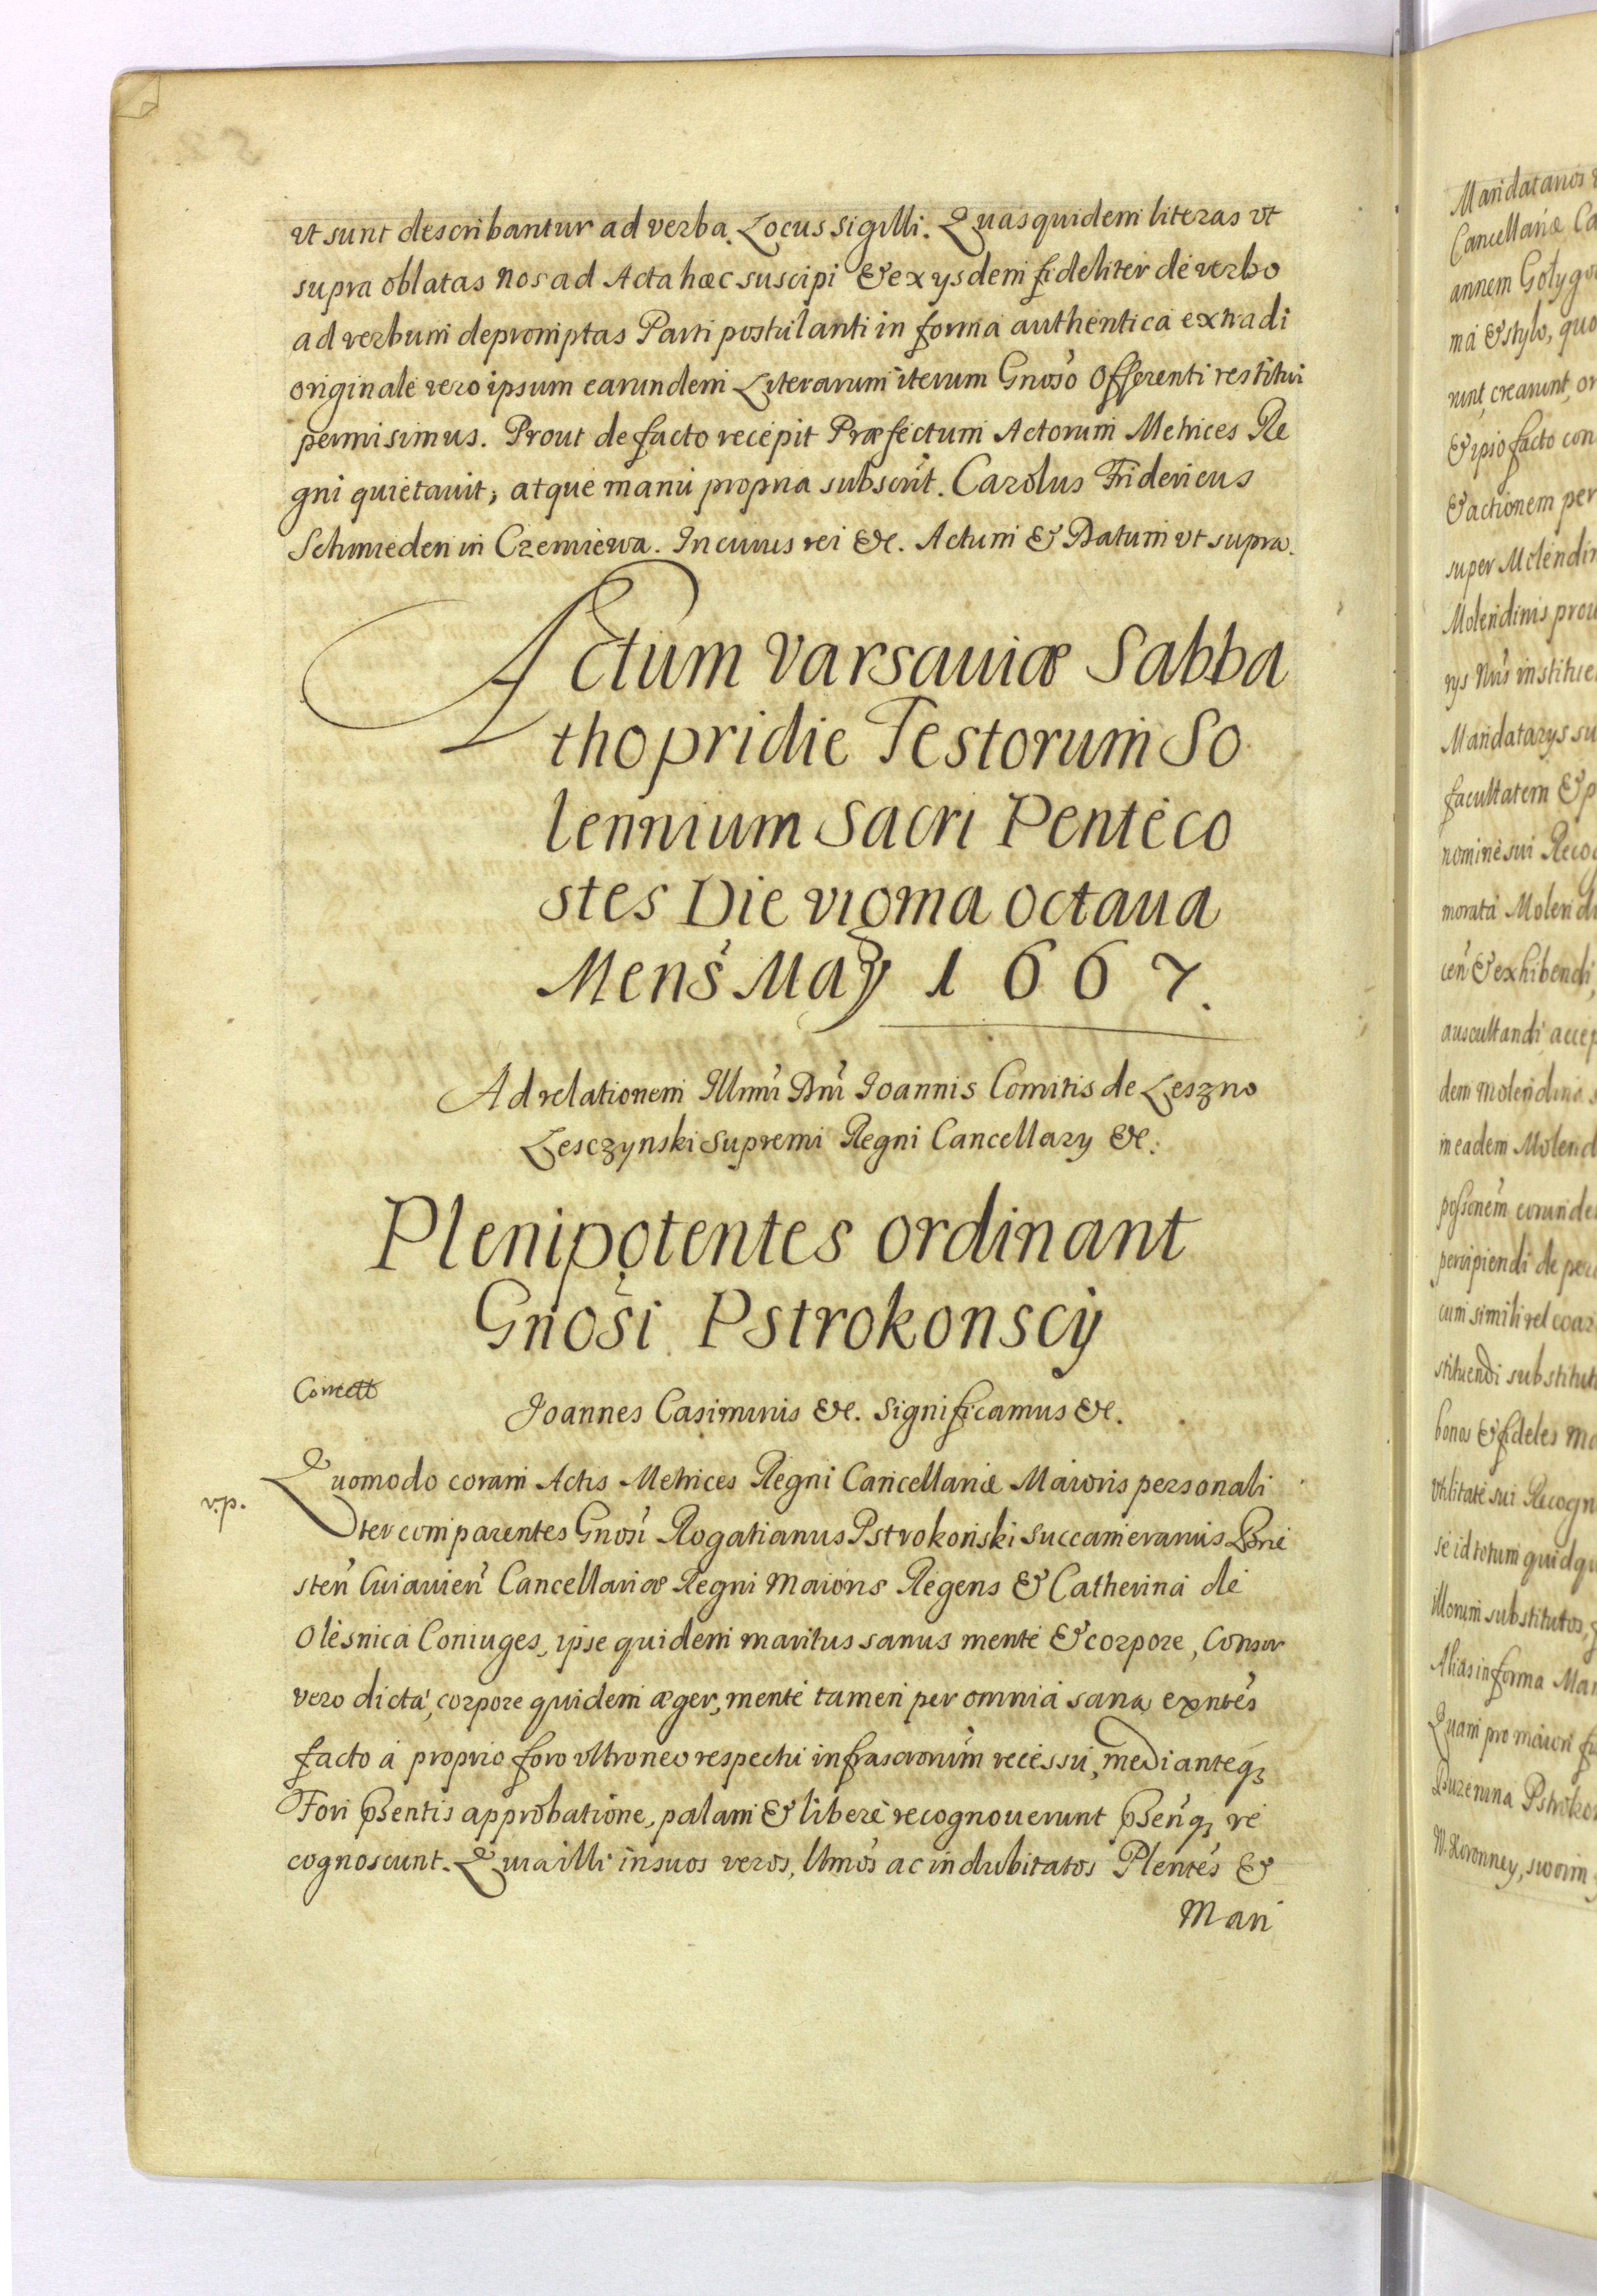 ut sunt describantur ad verba. Locus sigilli. Quas quidem literas ut
supra oblatas nos ad Acta hæc suscipi & ex ijsdem fideliter de verbo
ad verbum depromptas Parti postulanti in forma authentica extradi
originale vero ipsum earundem Literarum iterum Gnoso Offerenti restitui
permisimus. Prout de facto recepit Præfectum Actorum Metrices Re
gni quietavit, atque manu propria subscrit. Carolus Fridericus
Schmieden in Czerniewa. In cuius rei &c. Actum & Datum ut supra.
Actum Varsaviæ Sabba
tho pridie Festorum So
lennium Sacri Penteco
stes Die vigma octaua
Mens Maÿ 1667.
Ad relationem Illmi Dni Joannis Comitis de Leszno
Lesczynski Supremi Regni Cancellarÿ &c.
Plenipotentes ordinant
Gnosi Pstrokonscÿ
Joannes Casimirus &c. Significamus &c.
Quomodo coram Actis Metrices Regni Cancellariæ Maioris personali
v.p.
ter comparentes Gnosi Rogatianus Pstrokoński Succamerarius Brie
sten Cuiauien Cancellariæ Regni Maioris Regens & Catherina de
Olesnica Coniuges, ipse quidem maritus sanus mente & corpore, Consor
vero dicta, corpore quidem æger, mente tamen per omnia sana, exntes
facto a proprio foro ultroneo respectu infrascrorum recessu, medianteq3
Fori psentis approbatione, palam & libere recognouerunt psenq3 re
cognoscunt. Quia illi in suos veros, llmos ac indubitatos Plentes &
Man
Mandatarios
Cancellariæ Ca
annem Golygo
ma & stylo, quo
runt, crearunt, or
& ipso facto con
& actionem per
super Molendin
Molendinis prou
rys Nris institue
Mandatarys su
facultatem & p
nomine sui Recog
morata Molend
cen & exhibendi,
auscultandi, accep
dem molendina s
in eadem Molend
possonem eorunde
percipiendi de per
cum simili vel coar
stituendi substitut
bonos & fideles Ma
utilitate sui Recogn
se id totum quidqu
illorum substitutos,
Alias in forma Man
Quam pro maiori f
Pstroko
W. Koronney, swoim